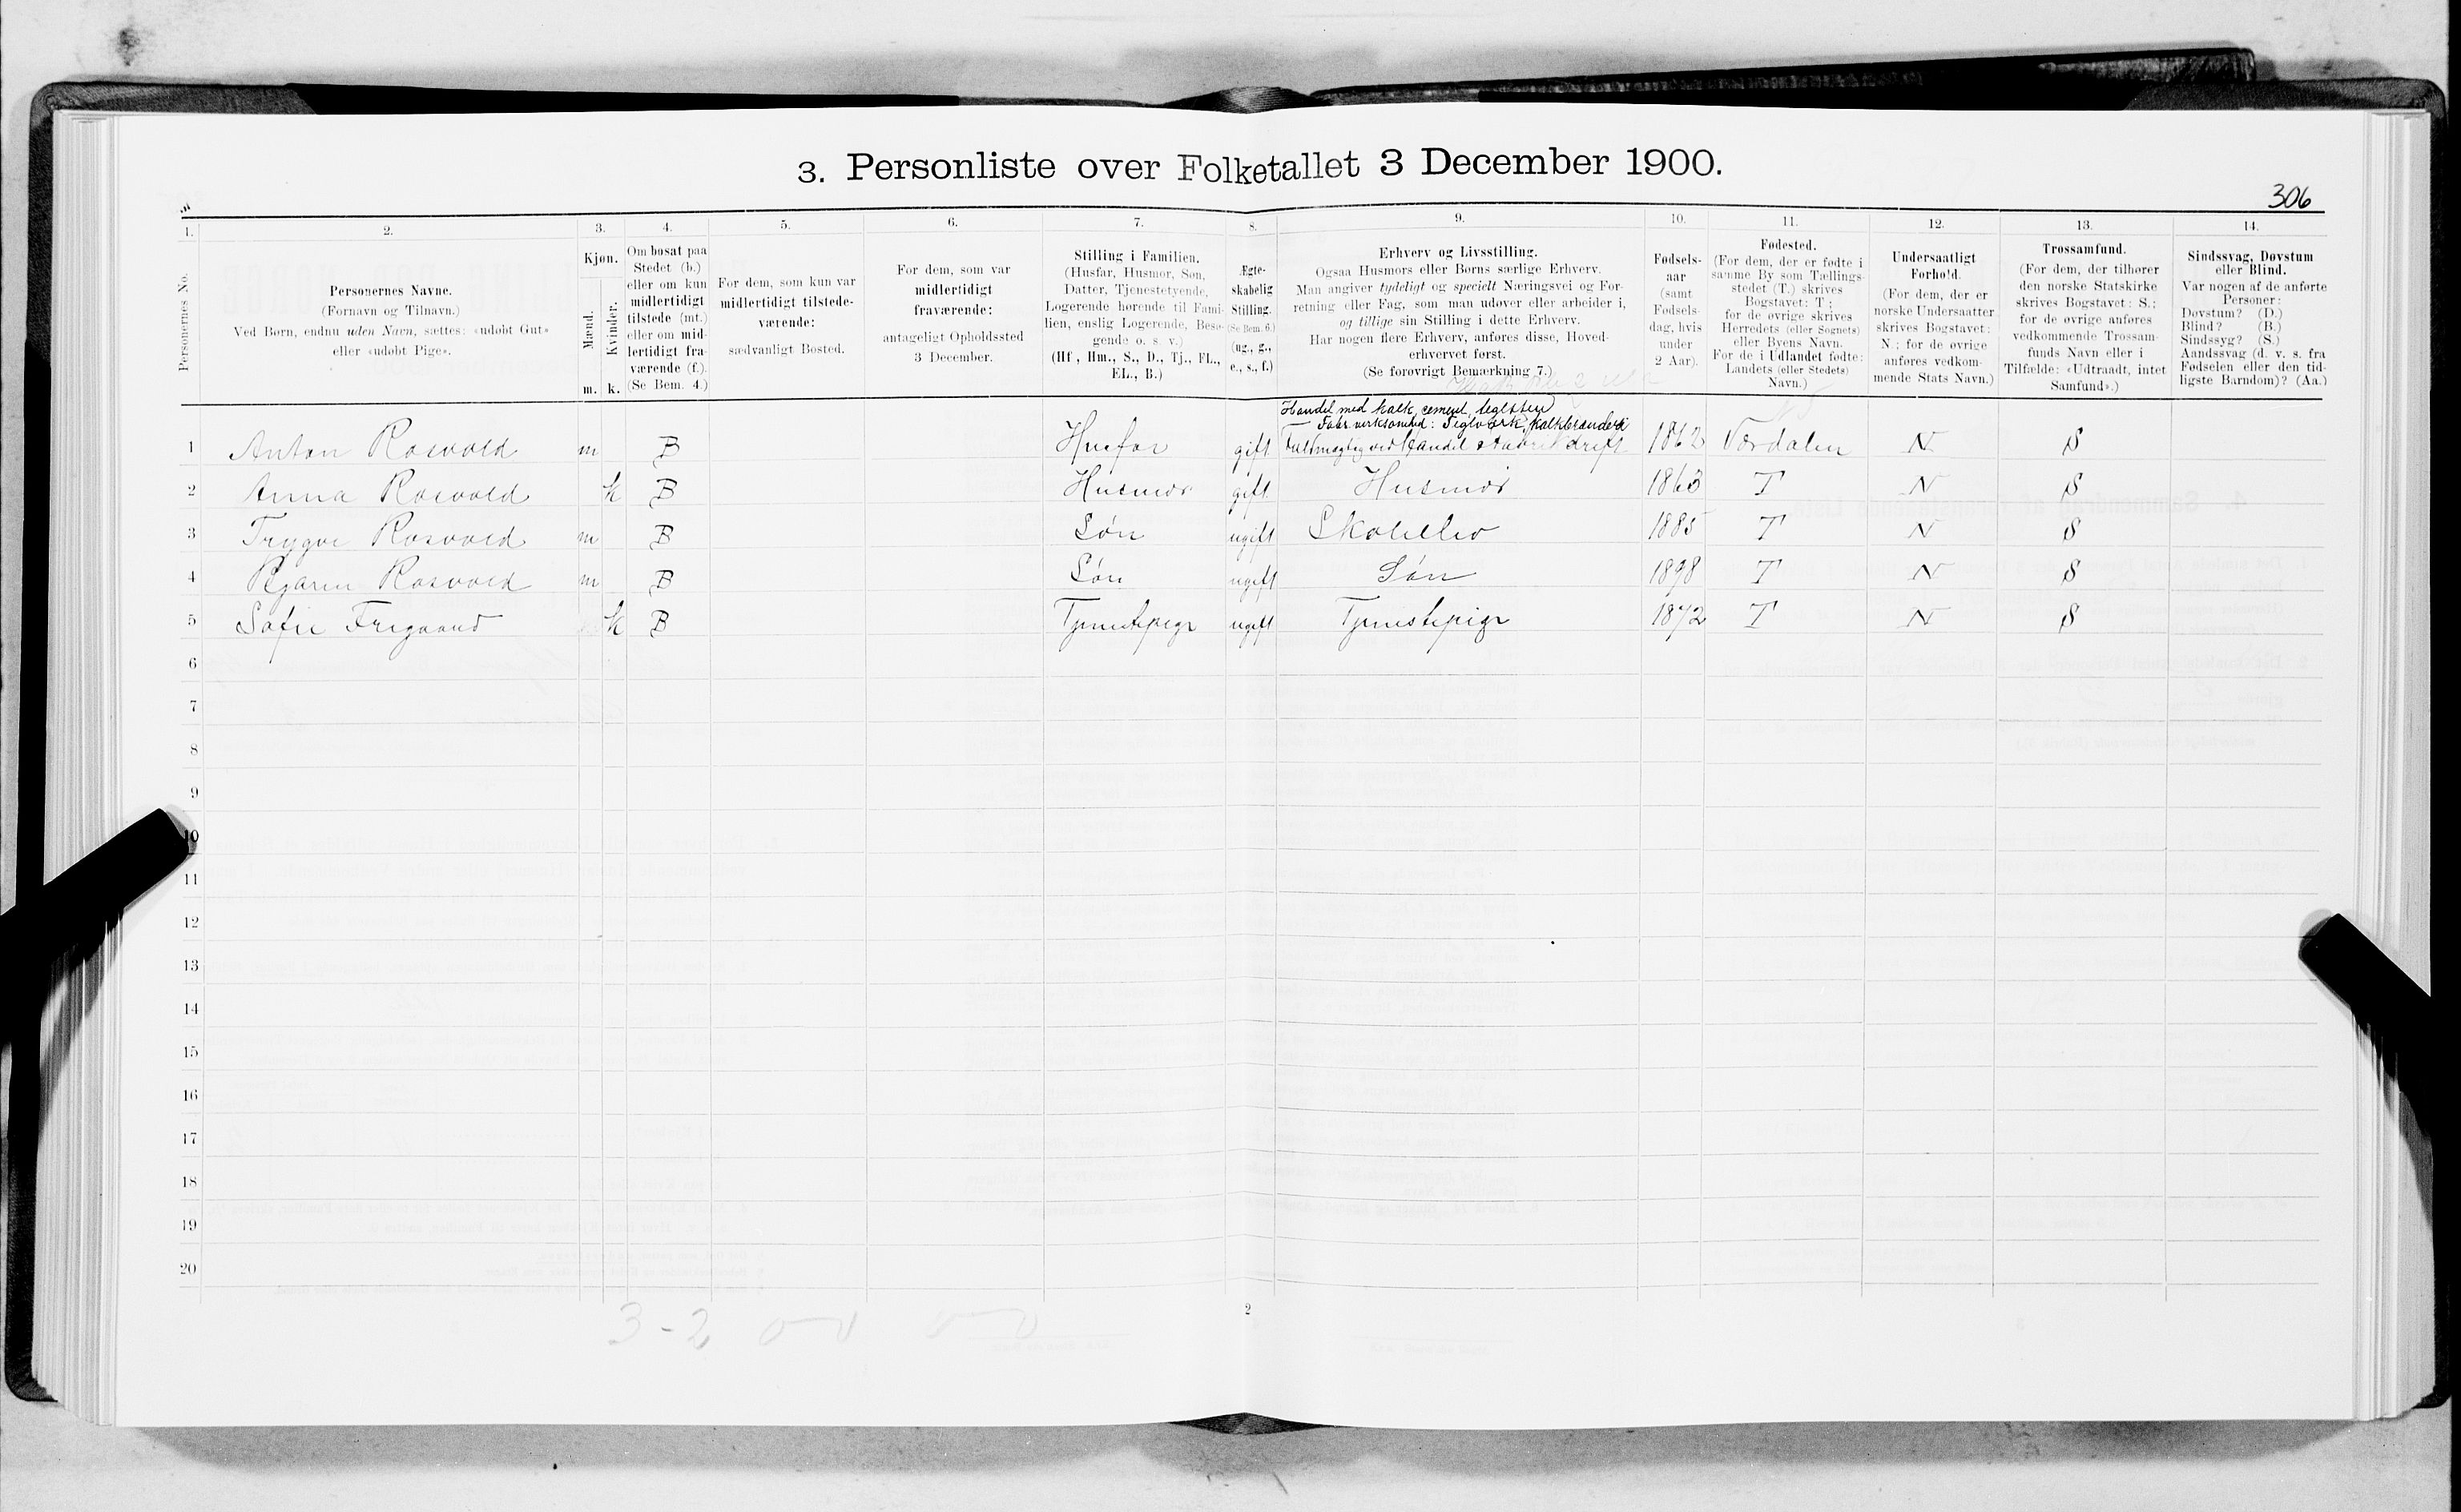 3. Personliste over Folketallet 3 December 1900.
306
1. 2. 3. 4. 5. 6. 7. 8. 9. 10. 11. 12. 13. 14.
Personernes No.
Personernes Navne.
(Fornavn og Tilnavn.)
Ved Børn, endnu uden Navn, sættes: «udøbt Gut»
eller «udøbt Pige».
Kjøn.
Mænd.
Kvinder.
m. k.
Om bosat paa
Stedet (b.)
eller om kun
midlertidigt
tilstede (mt.)
eller om mid-
lertidigt fra-
værende (f.).
(Se Bem. 4.)
For dem, som kun var
midlertidigt tilstede-
værende:
sædvanligt Bosted.
For dem, som var
midlertidigt
fraværende:
antageligt Opholdssted
3 December.
Stilling i Familien.
(Husfar, Husmor, Søn,
Datter, Tjenestetyende,
Logerende hørende til Fami-
lien, enslig Logerende, Besø-
gende o. s. v.)
(Hf., Hm., S., D., Tj., FL.,
EL., B.)
Ægte-
skabelig
Stilling.
(Se Bem. 6.)
(ug., g.,
e., s., f.)
Erhverv og Livsstilling.
Ogsaa Husmors eller Børns særlige Erhverv.
Man angiver tydeligt og specielt Næringsvei og For-
retning eller Fag, som man udøver eller arbeider i,
og tillige sin Stilling i dette Erhverv.
Har nogen flere Erhverv, anføres disse, Hoved-
erhvervet først.
(Se forøvrigt Bemærkning 7.)
Fødsels-
aar
(samt
Fødsels-
dag, hvis
under
2 Aar).
Fødested.
(For dem, der er fødte i
samme By som Tællings-
stedet (T.) skrives
Bogstavet: T;
for de øvrige skrives
Herredets (eller Sognets)
eller Byens Navn.
For de i Udlandet fødte:
Landets (eller Stedets)
Navn.)
Undersaatligt
Forhold.
(For dem, der er
norske Undersaatter
skrives Bogstavet:
N.; for de øvrige
anføres vedkom-
mende Stats Navn.)
Trossamfund.
(For dem, der tilhører
den norske Statskirke
skrives Bogstavet: S.;
for de øvrige anføres
vedkommende Trossam-
funds Navn eller i
Tilfælde: «Udtraadt, intet
Samfund».)
Sindssvag, Døvstum
eller Blind.
Var nogen af de anførte
Personer:
Døvstum? (D.)
Blind? (B.)
Sindssyg? (S.)
Aandssvag (d. v. s. fra
Fødselen eller den tid-
ligste Barndom)? (Aa.)
Handel med kalk, cement, teglsten
Fabr. virksomhed: Teglværk, kalkbrænderi
1 Anton Rosvold m B Husfar gift Fuldmægtig ved Handel & Fabrikdrift 1862 Værdalen N S
2 Anna Rosvold k B Husmor gift Husmor 1863 T N S
3 Trygve Rosvold m B Søn ugift Skoleelev 1885 T N S
4 Bjarne Rosvold m B Søn ugift Søn 1898 T N S
5 Sofie k B Tjenestepige ugift Tjenestepige 1872 T N S
6
7
8
9
10
11
12
13
14
15
16
17
18
19
20
2
3-2